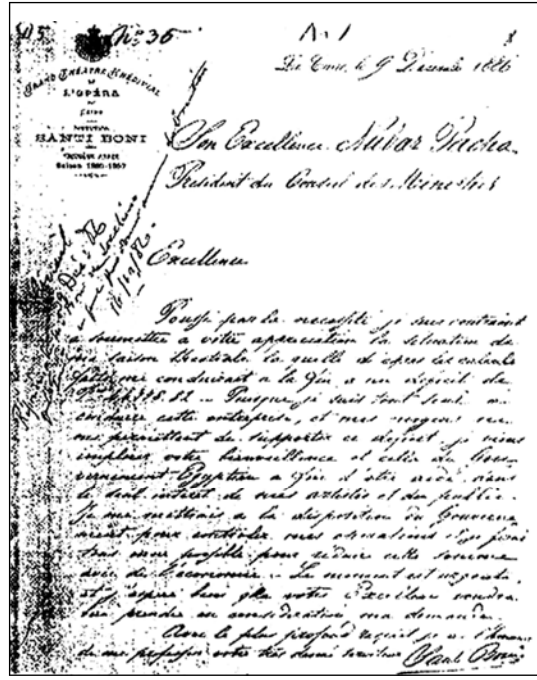 N° 36
GRAND THÉÂTRE KHÉDIVIAL
DE
L'OPÉRA
DU
CAIRE
SANTI BONI
Saison 1886-1887
Le Caire, le 9 Décembre 1886
Son Excellence Nubar Pacha
Président du Conseil des Ministres
Excellence
Poussé par la necessité je suis contraint
a soumettre a votre appreciation la situation de
ma saison théatrale la quelle d'apres les calculs
faits me conduirait a la fin a un deficit de
Puisque je suis tout seul a
conduire cette entreprise, et mes moyens ne
me permettent de supporter ce deficit je viens
implorer votre bienveillance et celle du Gouv
vernement Egyptien a fin d'etre aidé dans
le seul interet de mes artistes et du public.
Je me mettrais a la disposition du Gouverne
ment pour controler mes operations et je ferai
tout mon possible pour réduire cette somme
avec de l'économie. Le moment est urgent
et j'espere bien que votre Excellence voudra
bien prendre en consideration ma demande.
Avec le plus profond respect je a l'honneur
de me professer votre très devoué serviteur
Santi Boni